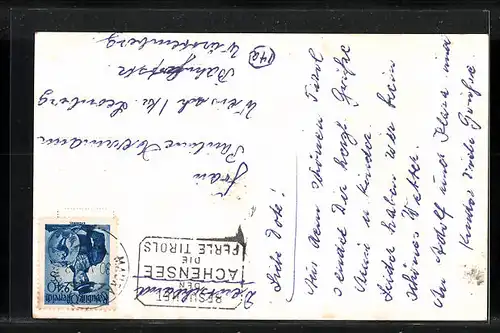 Liebe Dote!
Aus dem schönen Tirol
sendet Dir herzl. Grüße
Mimi u. Kinder.
Leider haben wir kein
schönes Wetter.
Adolf und Klara und
Kinder viele Grüße
BESUCHET
DEN
ACHENSEE
DIE
PERLE TIROLS
Republik Österreich
2.40
Deutschland
Frau
Pauline
Kr. Leonberg
Bahnhofstr.
Württemberg.
(14a)